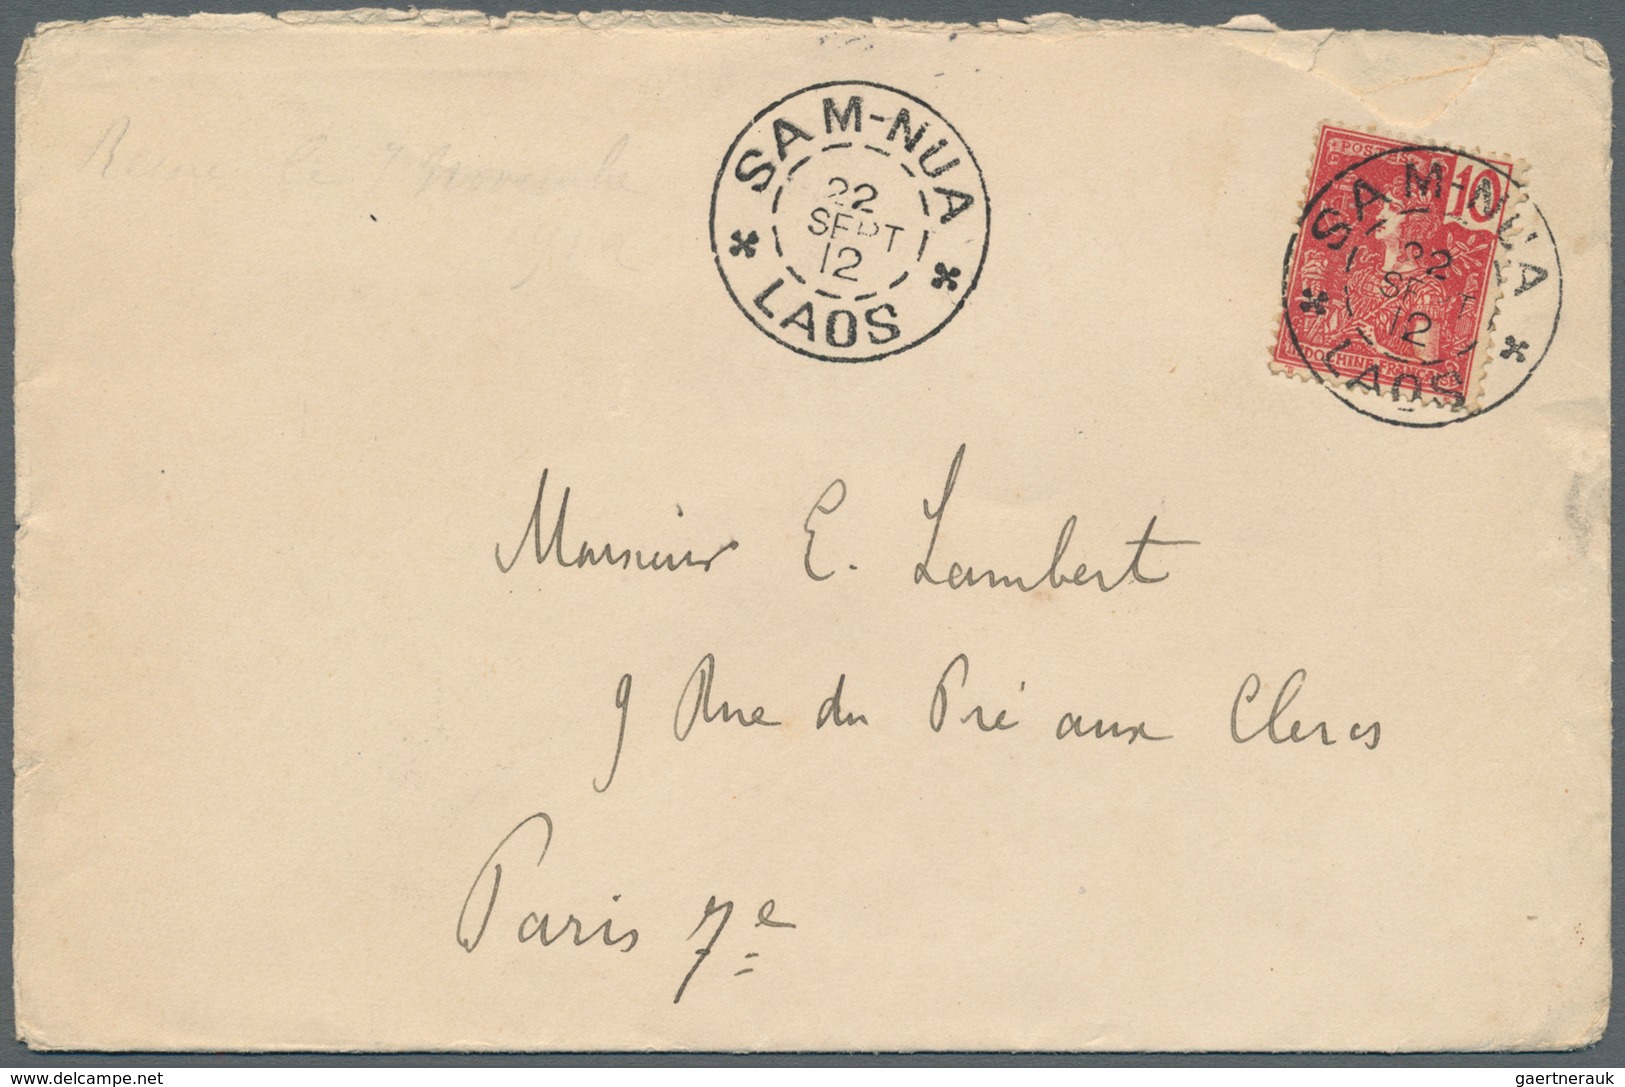 le 7 Novembre
SAM-NUA
22
SEPT
12
LAOS
POSTES
10
INDOCHINE FRANÇAISE
SAM-NUA
22
SEPT
12
LAOS
Monsieur E. Lambert
9 Rue du Pré aux Clercs
Paris 7e
delcampe.net
gaertnerauk